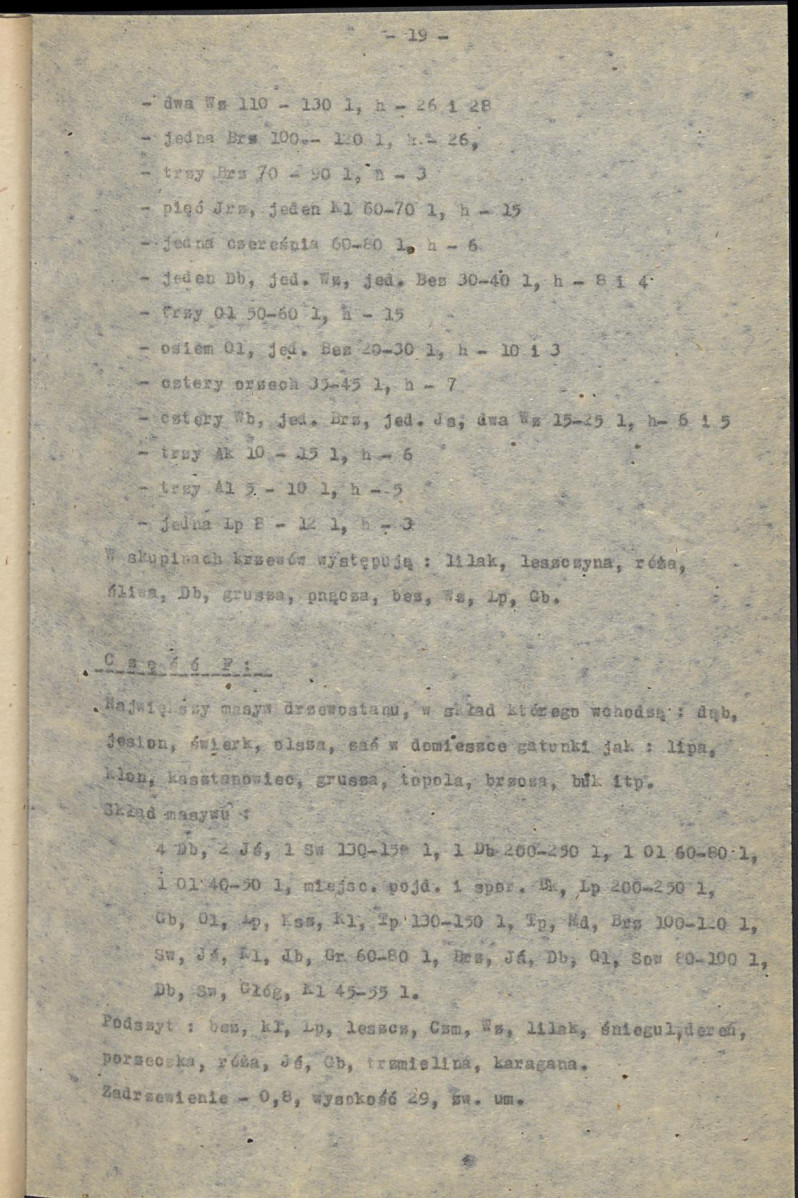 - 19 -
- dwa Wz 110 - 130 l, h - 26 i 28
- jedna Brz 100 - 120 l, h - 26,
- trzy Brz 70 - 90 l, h - 3
- pięć Jrz, jeden Kl 60-70 l, h - 15
- jedna czereśnia 60-80 l, h - 6
- jeden Db, jed. Wz, jed. Bez 30-40 l, h - 8 i 4
- Trzy Ol 50-60 l, h - 15
- osiem Ol, jed. Bez 20-30 l, h - 10 i 3
- cztery orzech 35-45 l, h - 7
- cztery Wb, jed. Brz, jed. Js, dwa Wz 15-25 l, h- 6 i 5
- trzy Ak 10 - 15 l, h - 6
- trzy Al 5 - 10 l, h - 5
- jedna Lp 8 - 12 l, h - 3
W skupinach krzewów występują : lilak, leszczyna, róża,
śliwa, Db, grusza, pnącza, bez, Wz, Lp, Gb.
C z ę ś ć F :
Największy masyw drzewostanu, w skład którego wchodzą : dąb,
jesion, świerk, olsza, zaś w domieszce gatunki jak : lipa,
klon, kasztanowiec, grusza, topola, brzoza, buk itp.
Skład masywu :
4 Db, 2 Jś, 1 Sw 130-150 l, 1 Db 200-250 l, 1 Ol 60-80 l,
1 Ol 40-50 l, miejsc. pojd. i spor. Bk, Lp 200-250 l,
Gb, Ol, Lp, Ksz, Kl, Tp 130-150 l, Tp, Md, Brz 100-120 l,
Sw, Jś, Kl, Jb, Gr 60-80 l, Brz, Jś, Db, Ol, Sow 80-100 l,
Db, Sw, Głóg, Kl 45-55 l.
Podszyt : bez, kł, Lp, leszcz, Czm, Wz, lilak, śniegul, dereń,
porzeczka, róża, Jś, Gb, trzmielina, karagana.
Zadrzewienie - 0,8, wysokość 29, zw. um.